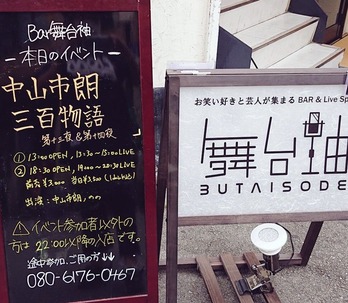 Bar舞台袖
ー本日のイベントー
中山市朗
三百物語
第十三夜&第十四夜
① 13:00 OPEN, 13:30~15:00 LIVE
② 18:30 OPEN, 19:00~20:30 LIVE
前売¥3,000 当日¥3,500 (1d込み)
出演:中山市朗、のの
⚠イベント参加者以外の
方は22:00以降の入店です。
途中参加、ご用の方↓↓
080-6176-0467
お笑い好きと芸人が集まる BAR & Live Sp
舞台袖
BUTAISODE